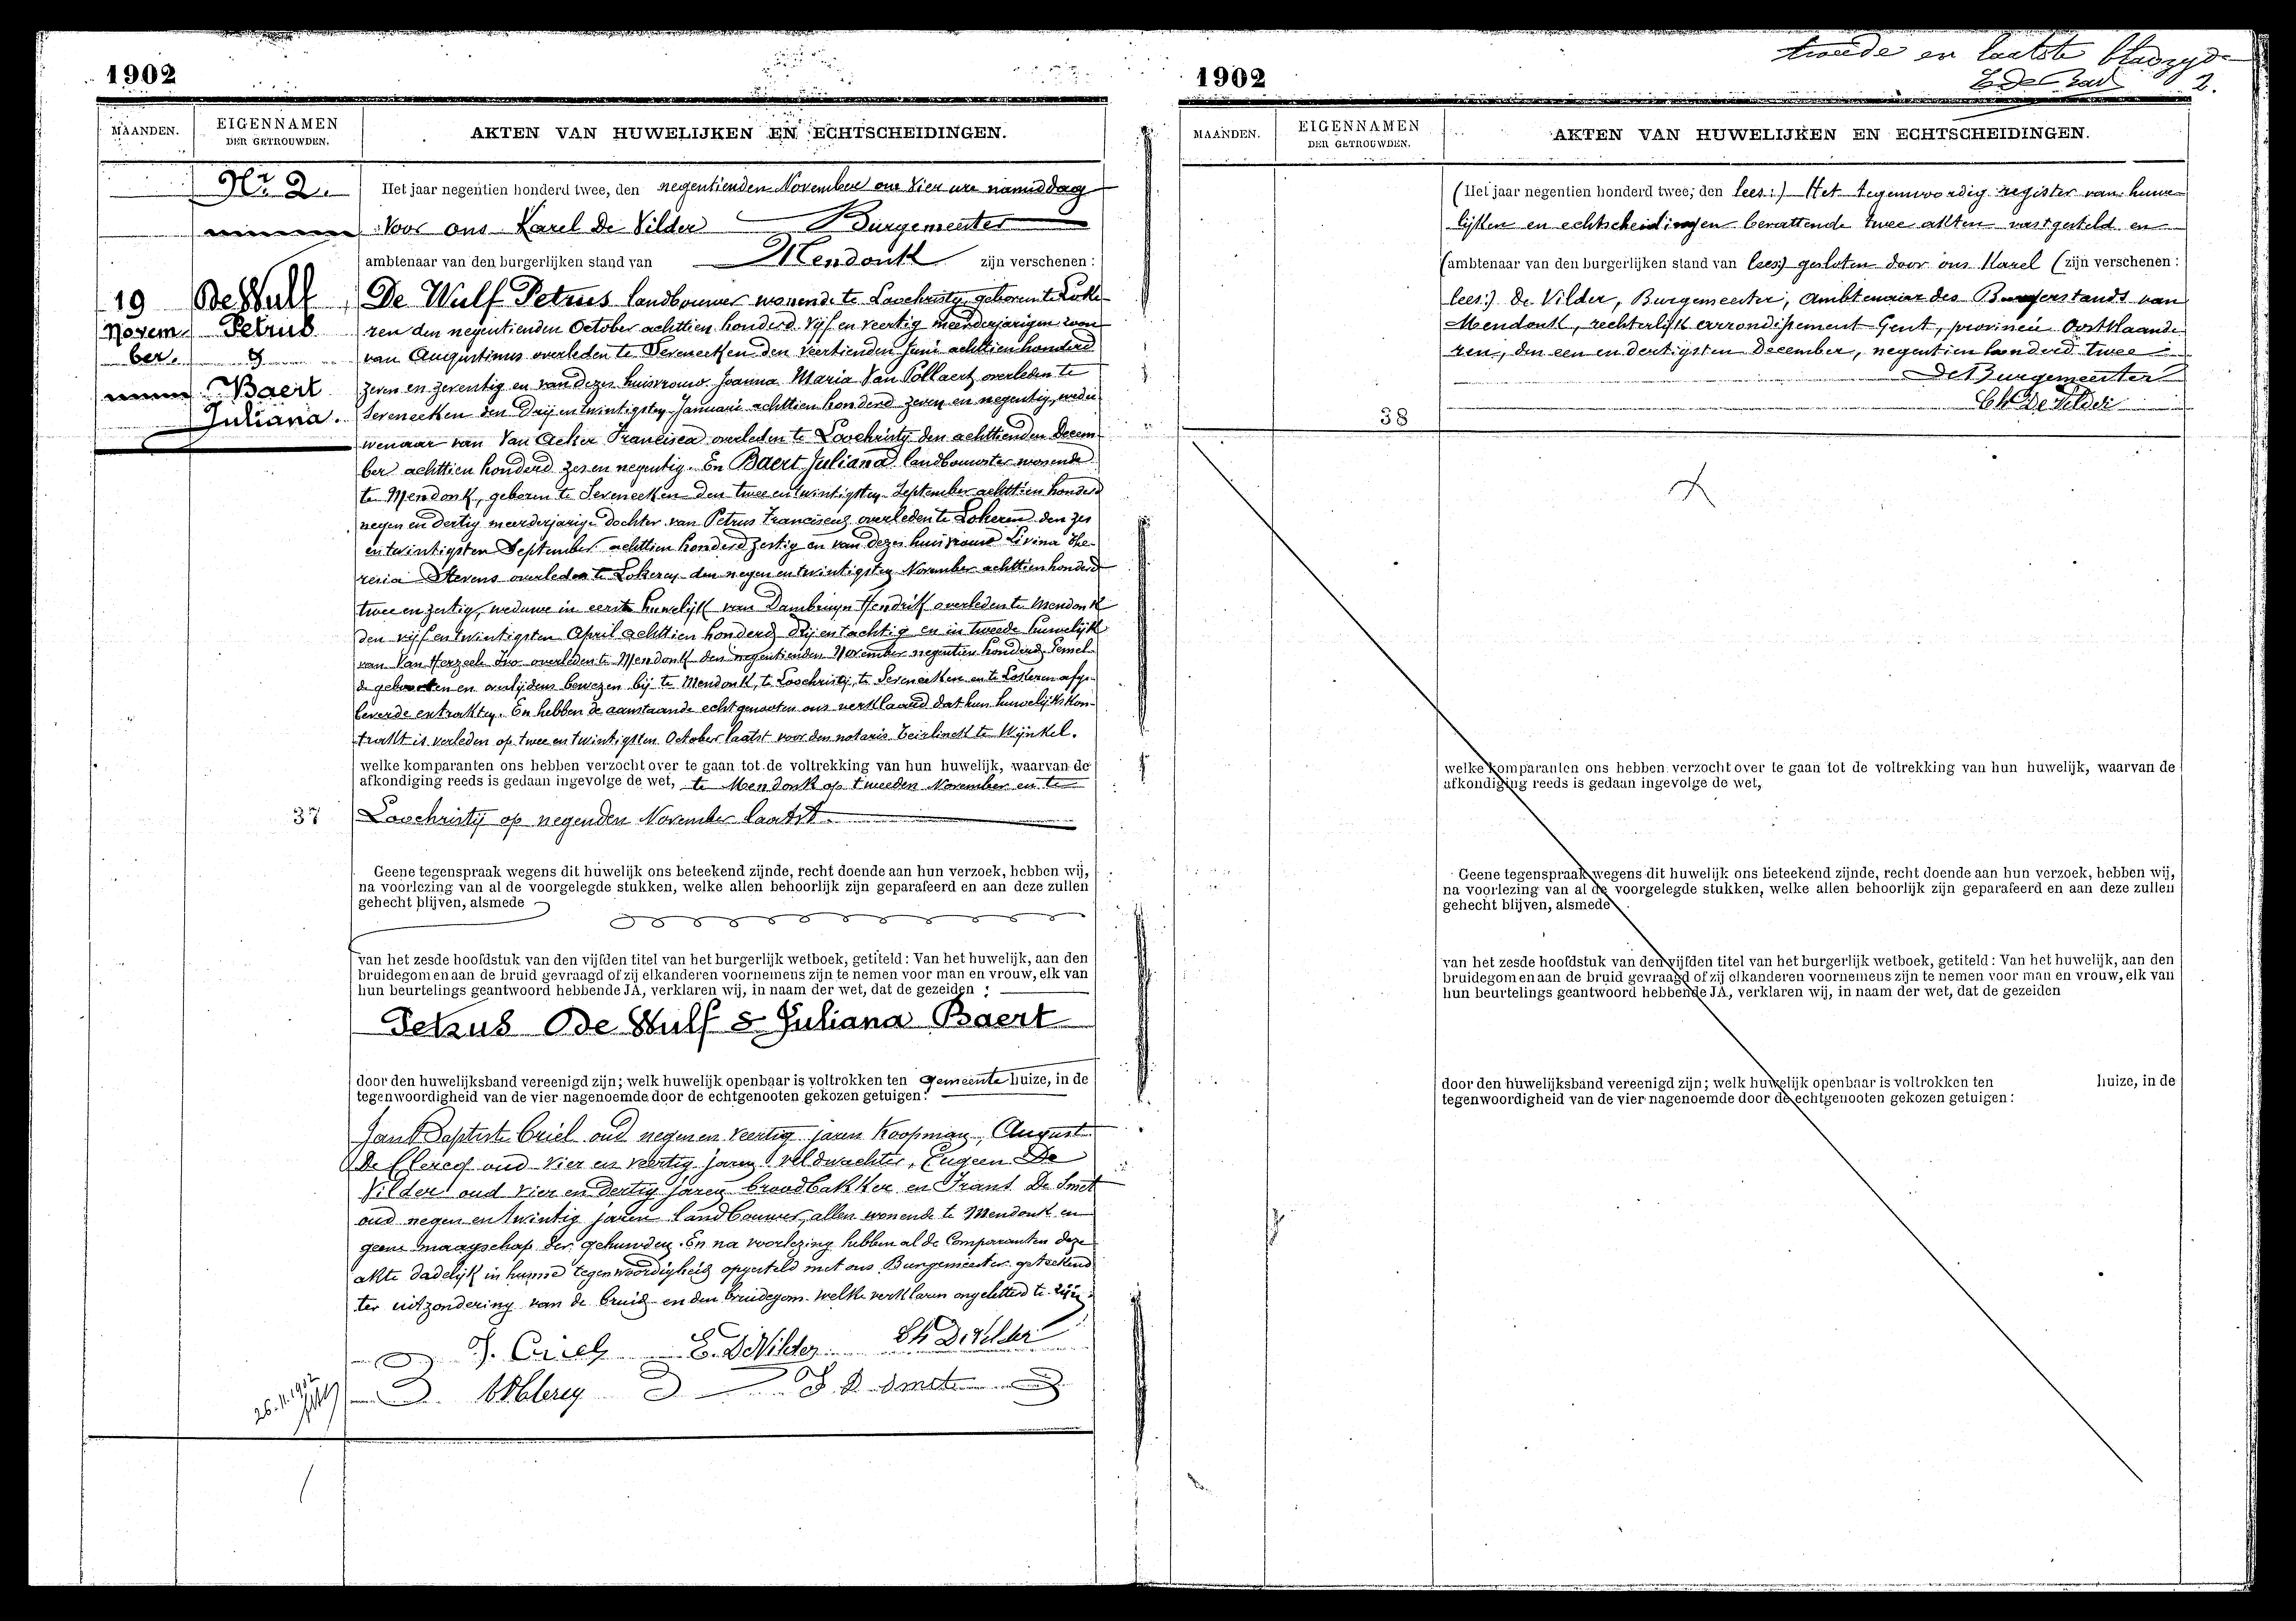 1902
MAANDEN.
EIGENNAMEN
DER GETROUWDEN.
AKTEN VAN HUWELIJKEN EN ECHTSCHEIDINGEN.
Nr 2.
19
Novem
ber.
De Wulf
Petrus
&
Baert
Juliana.
Het jaar negentien honderd twee, den negentienden November om vier ure namiddag
voor ons Karel De Vilder Burgemeester
ambtenaar van den burgerlijken stand van Mendonk zijn verschenen:
De Wulf Petrus landbouwer wonende te Loochristy, geboren te Loke
ren den negentienden October achttien honderd vijf en veertig meerderjarigen zoon
van Augustinus overleden te Seveneeken den veertienden Juni achttien honderd
zeven en zeventig en van dezes huisvrouw Joanna Maria Van Pollaert overleden te
Seveneeken den drij en twintigsten Januari achttien honderd zeven en negentig, wedu
wenaar van Van Acker Francisca overleden te Loochristy den achttienden Decem
ber achttien honderd zes en negentig. En Baert Juliana landbouwster wonende
te Mendonk, geboren te Seveneeken den twee en twintigsten September achttien honderd
negen en dertig meerderjarige dochter van Petrus Franciscus overleden te Lokeren den zes
en twintigsten September achttien honderd zestig en van dezes huisvrouw Livina The-
resia Stevens overleden te Lokeren den negen en twintigsten November achttien honderd
twee en zestig, weduwe in eerste huwelijk van Dambruyn Hendrik overleden te Mendonk
den vijf en twintigsten April achttien honderd drij en tachtig en in tweede huwelijk
van Van Herzeele Ivo overleden te Mendonk den negentienden November negentien honderd. Gemel
de geboorten en overlijdens bewezen bij te Mendonk, te Loochristy, te Seveneeken en te Lokeren afge-
leverde extrakten. En hebben de aanstaande echtgenooten ons verklaard dat hun huwelijkskon-
trakt is verleden op twee en twintigsten October laatst voor den notaris Beirlinck te Wynkel.
welke komparanten ons hebben verzocht over te gaan tot de voltrekking van hun huwelijk, waarvan de
afkondiging reeds is gedaan ingevolge de wet, te Mendonk op tweeden November en te
37
Loochristij op negenden November laatst.
Geene tegenspraak wegens dit huwelijk ons beteekend zijnde, recht doende aan hun verzoek, hebben wij,
na voorlezing van al de voorgelegde stukken, welke allen behoorlijk zijn geparafeerd en aan deze zullen
gehecht blijven, alsmede
van het zesde hoofdstuk van den vijfden titel van het burgerlijk wetboek, getiteld: Van het huwelijk, aan den
bruidegom en aan de bruid gevraagd of zij elkanderen voornemens zijn te nemen voor man en vrouw, elk van
hun beurtelings geantwoord hebbende JA, verklaren wij, in naam der wet, dat de gezeiden :
Petrus De Wulf & Juliana Baert
door den huwelijksband vereenigd zijn; welk huwelijk openbaar is voltrokken ten gemeente huize, in de
tegenwoordigheid van de vier nagenoemde door de echtgenooten gekozen getuigen:
Jan Baptiste Criel oud negen en veertig jaren Koopman, August
De Clercq oud vier en veertig jaren veldwachter, Eugeen De
Vilder oud vier en dertig jaren broodbakker en Frans De Smet
oud negen en twintig jaren landbouwer, allen wonende te Mendonk en
geene maagschap der gehuwden. En na voorlezing hebben al de Comparanten deze
akte dadelijk in hunne tegenwoordigheid opgesteld met ons Burgemeester geteekend
ter uitzondering van de bruid en den bruidegom welke verklaren ongeletterd te zijn.
J. Criel E. De Vilder Ch De Vilder
F. D Smet
26.11.1902
1902
tweede en laatste bladzyde
2.
MAANDEN.
EIGENNAMEN
DER GETROUWDEN.
AKTEN VAN HUWELIJKEN EN ECHTSCHEIDINGEN.
(Het jaar negentien honderd twee, den lees:) Het tegenwoordig register van huwe
lijken en echtscheidingen bevattende twee akten vastgesteld en
(ambtenaar van den burgerlijken stand van lees:) gesloten door ons Karel (zijn verschenen:
lees:) De Vilder, Burgemeester, Ambtenaar des Burgerstands van
Mendonk, rechterlijk arrondissement Gent, provincie Oostvlaande
ren, den een en dertigsten December, negentien honderd twee
De Burgemeester
38
Ch De Vilder
welke komparanten ons hebben verzocht over te gaan tot de voltrekking van hun huwelijk, waarvan de
afkondiging reeds is gedaan ingevolge de wet,
Geene tegenspraak wegens dit huwelijk ons beteekend zijnde, recht doende aan hun verzoek, hebben wij,
na voorlezing van al de voorgelegde stukken, welke allen behoorlijk zijn geparafeerd en aan deze zullen
gehecht blijven, alsmede
van het zesde hoofdstuk van den vijfden titel van het burgerlijk wetboek, getiteld: Van het huwelijk, aan den
bruidegom en aan de bruid gevraagd of zij elkanderen voornemens zijn te nemen voor man en vrouw, elk van
hun beurtelings geantwoord hebbende JA, verklaren wij, in naam der wet, dat de gezeiden
door den huwelijksband vereenigd zijn; welk huwelijk openbaar is voltrokken ten huize, in de
tegenwoordigheid van de vier nagenoemde door de echtgenooten gekozen getuigen: